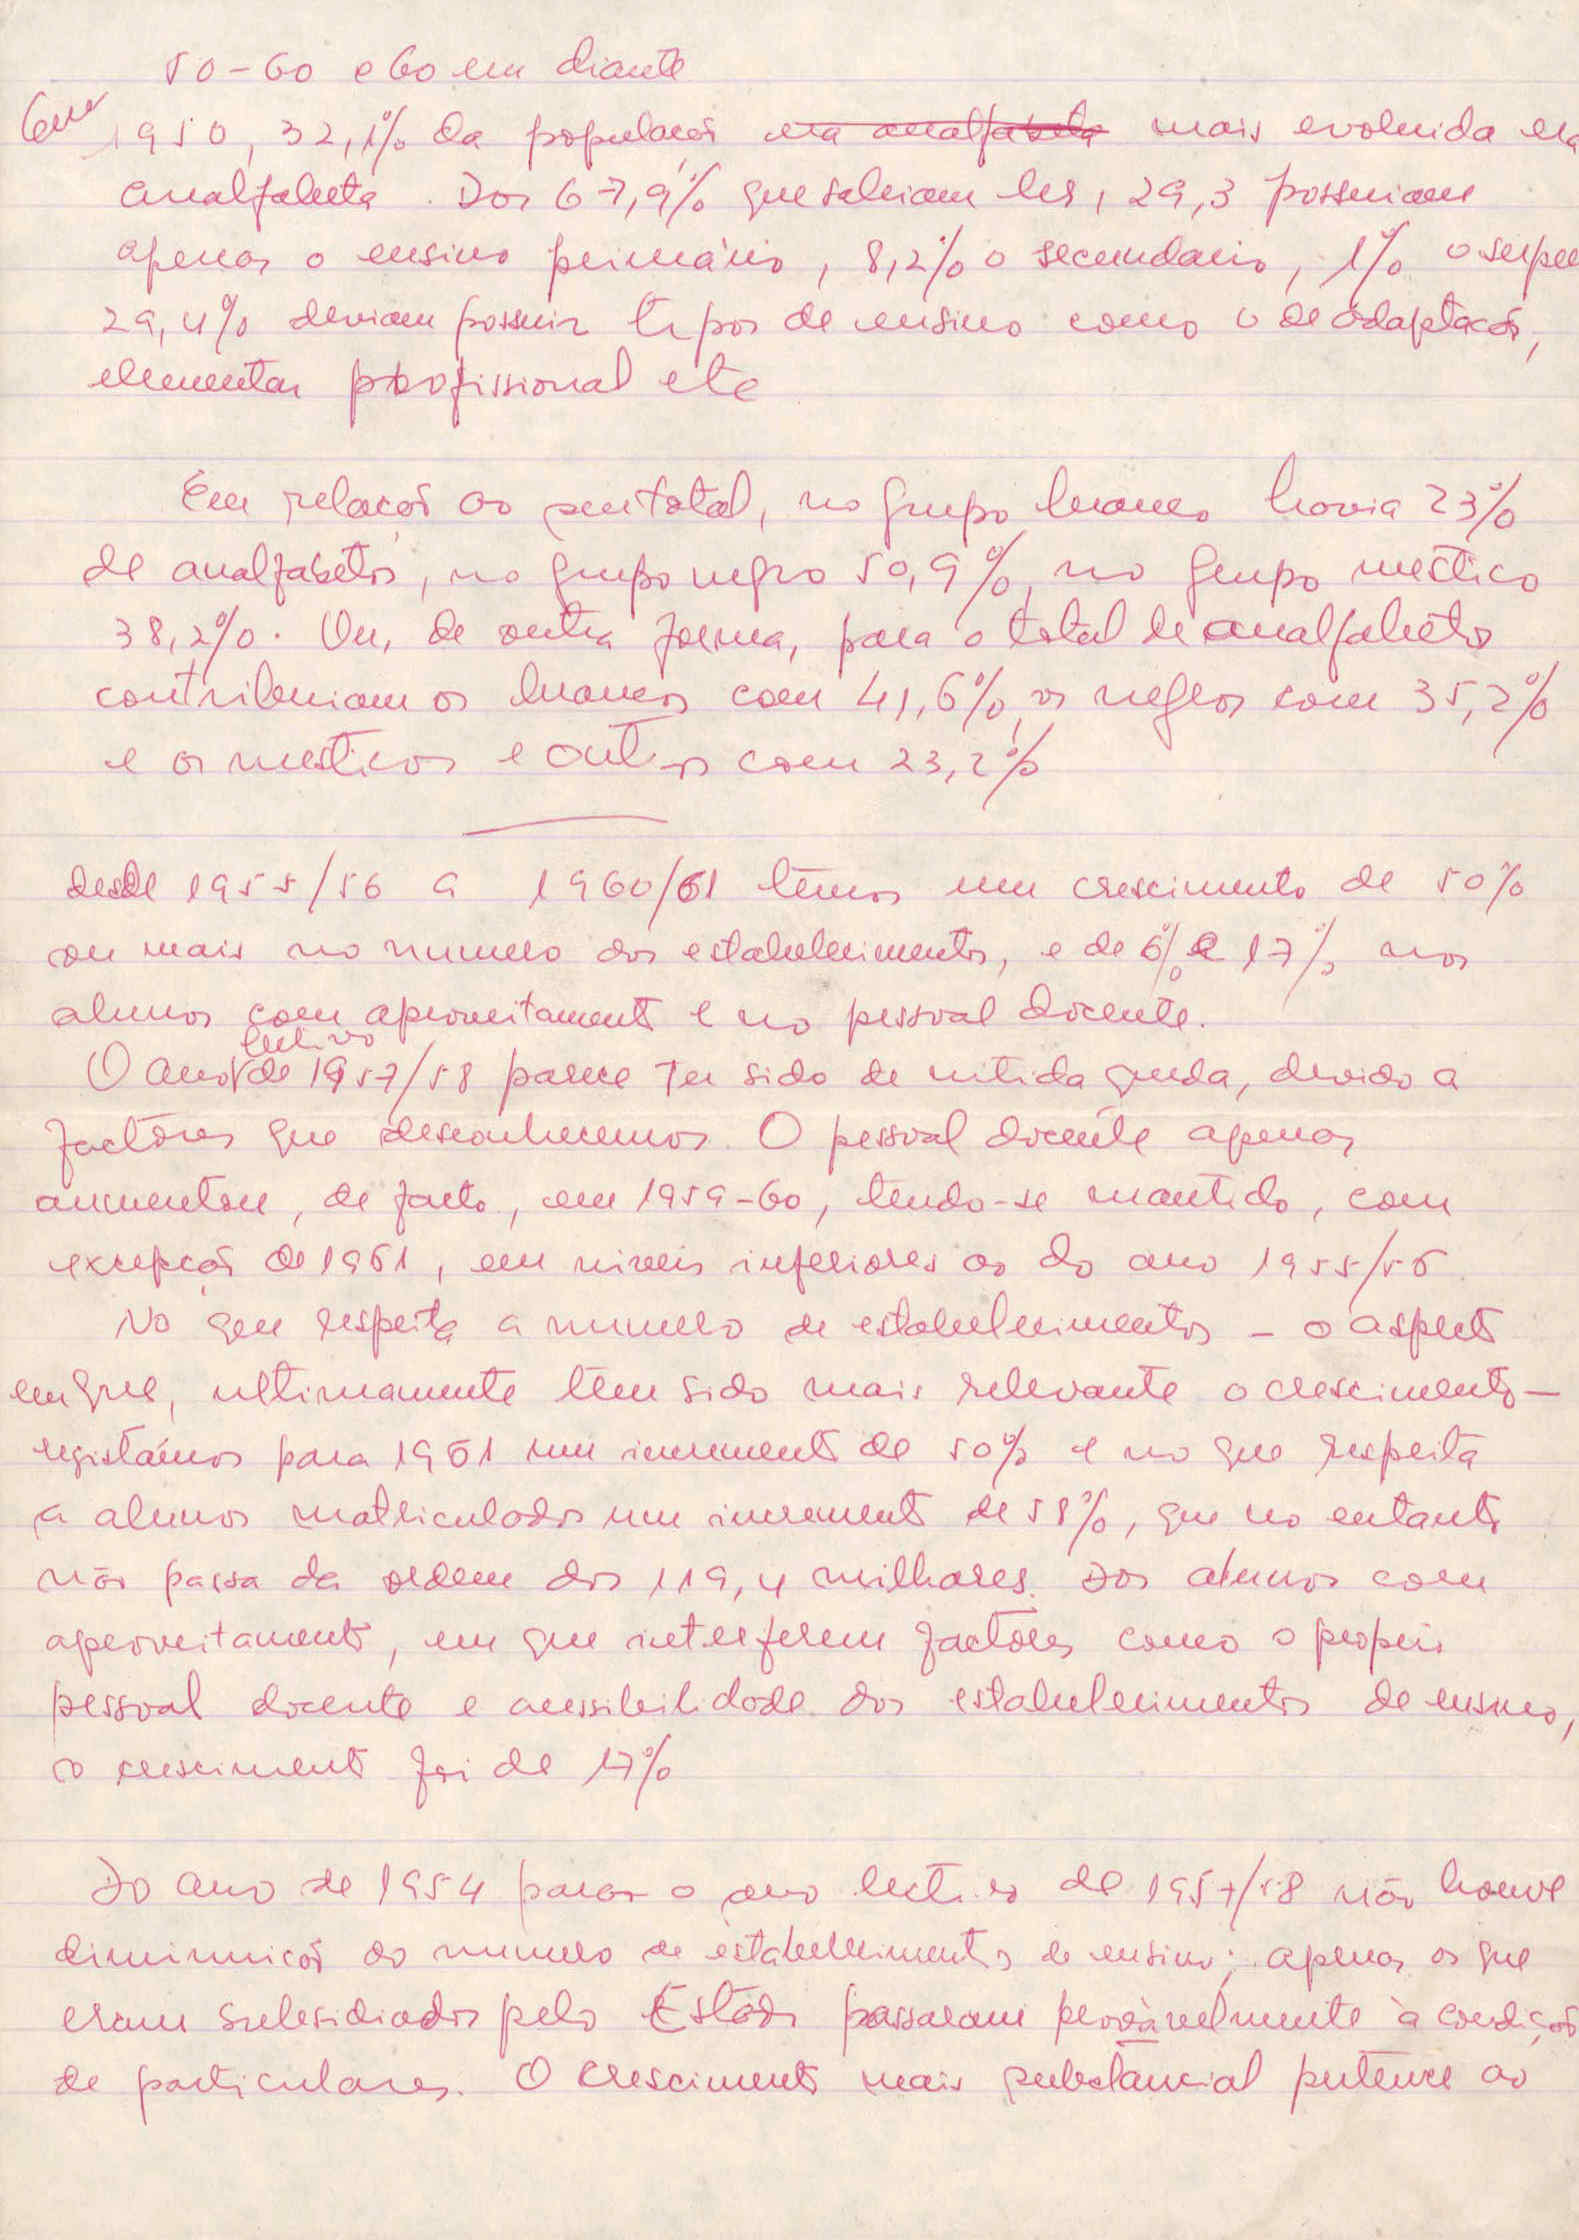 50-60 e 60 em diante
Em 1950, 32,1% da população era analfabeta mais evoluida era
analfabeta. Dos 67,9% que sabiam ler, 29,3 possuiam
apenas o ensino primário, 8,2% o secundario, 1% o super
29,4% deviam possuir tipos de ensino como o de adaptação,
elementar profissional etc
Em relação ao total, no grupo branco havia 23%
de analfabetos, no grupo negro 50,9%, no grupo mestiço
38,2%. Ou, de outra forma, para o total de analfabetos
contribuiam os brancos com 41,6%, os negros com 35,2%
e os mestiços e outros com 23,2%
desde 1955/56 a 1960/61 temos um crescimento de 50%
ou mais no numero dos estabelecimentos, e de 6% e 17% nos
alunos com aproveitamento e no pessoal docente.
lectivo
O ano de 1957/58 parece ter sido de nitida queda, devido a
factores que desconhecemos. O pessoal docente apenas
aumentou, de facto, em 1959-60, tendo-se mantido, com
excepção de 1961, em niveis inferiores ao do ano 1955/56
No que respeita a numero de estabelecimentos - o aspecto
em que, ultimamente tem sido mais relevante o crescimento -
registámos para 1961 um incremento de 50% e no que respeita
a alunos matriculados um incremento de 58%, que no entanto
não passa da ordem dos 119,4 milhares. Dos alunos com
aproveitamento, em que interferem factores como o proprio
pessoal docente e acessibilidade dos estabelecimentos de ensino,
o crescimento foi de 17%
Do ano de 1954 para o ano lectivo de 1957/58 não houve
diminuição do numero de estabelecimentos de ensino; apenas os que
eram subsidiados pelo Estado passaram provàvelmente à condição
de particulares. O crescimento mais substâncial pertence ao